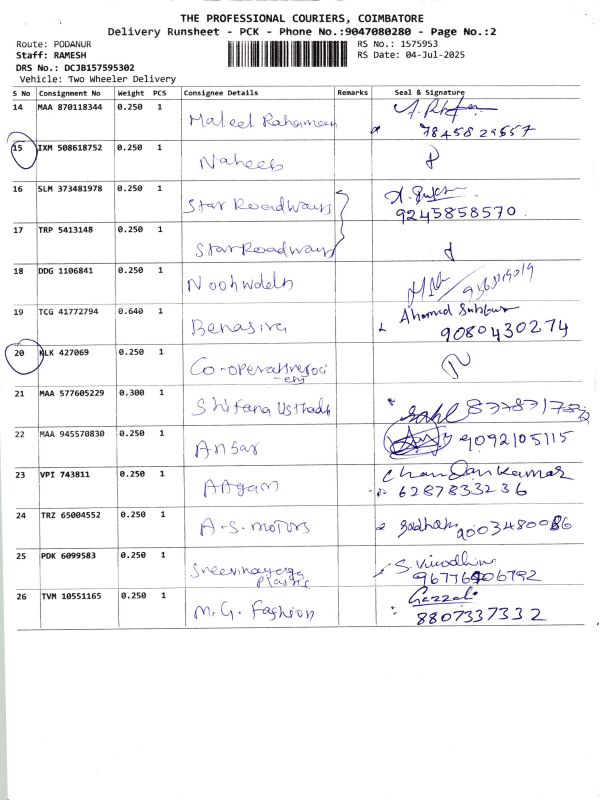 THE PROFESSIONAL COURIERS, COIMBATORE
Delivery Runsheet - PCK - Phone No.:9047080280 - Page No.:2
Route: PODANUR
RS No.: 1575953
Staff: RAMESH
RS Date: 04-Jul-2025
DRS No.: DCJB157595302
Vehicle: Two Wheeler Delivery
S No Consignment No Weight PCS Consignee Details Remarks Seal & Signature
14 MAA 870118344 0.250 1 Maleel Rahaman
7845829557
15 IXM 508618752 0.250 1 Naheeb
16 SLM 373481978 0.250 1 Star Roadways
9245858570
17 TRP 5413148 0.250 1 Star Roadways
18 DDG 1106841 0.250 1
19 TCG 41772794 0.640 1 Benasira Ahamed
9080430274
20 KLK 427069 0.250 1 Co-operative
21 MAA 577605229 0.300 1 Shifana
22 MAA 945570830 0.250 1 Ansar 9092105115
23 VPI 743811 0.250 1 Aagam Chandan Kumar
6287833236
24 TRZ 65004552 0.250 1 A.S. motors
25 PDK 6099583 0.250 1 Sreevinayaga S. Vinodhini
Plastic
26 TVM 10551165 0.250 1 M.G. Fashion
8807337332